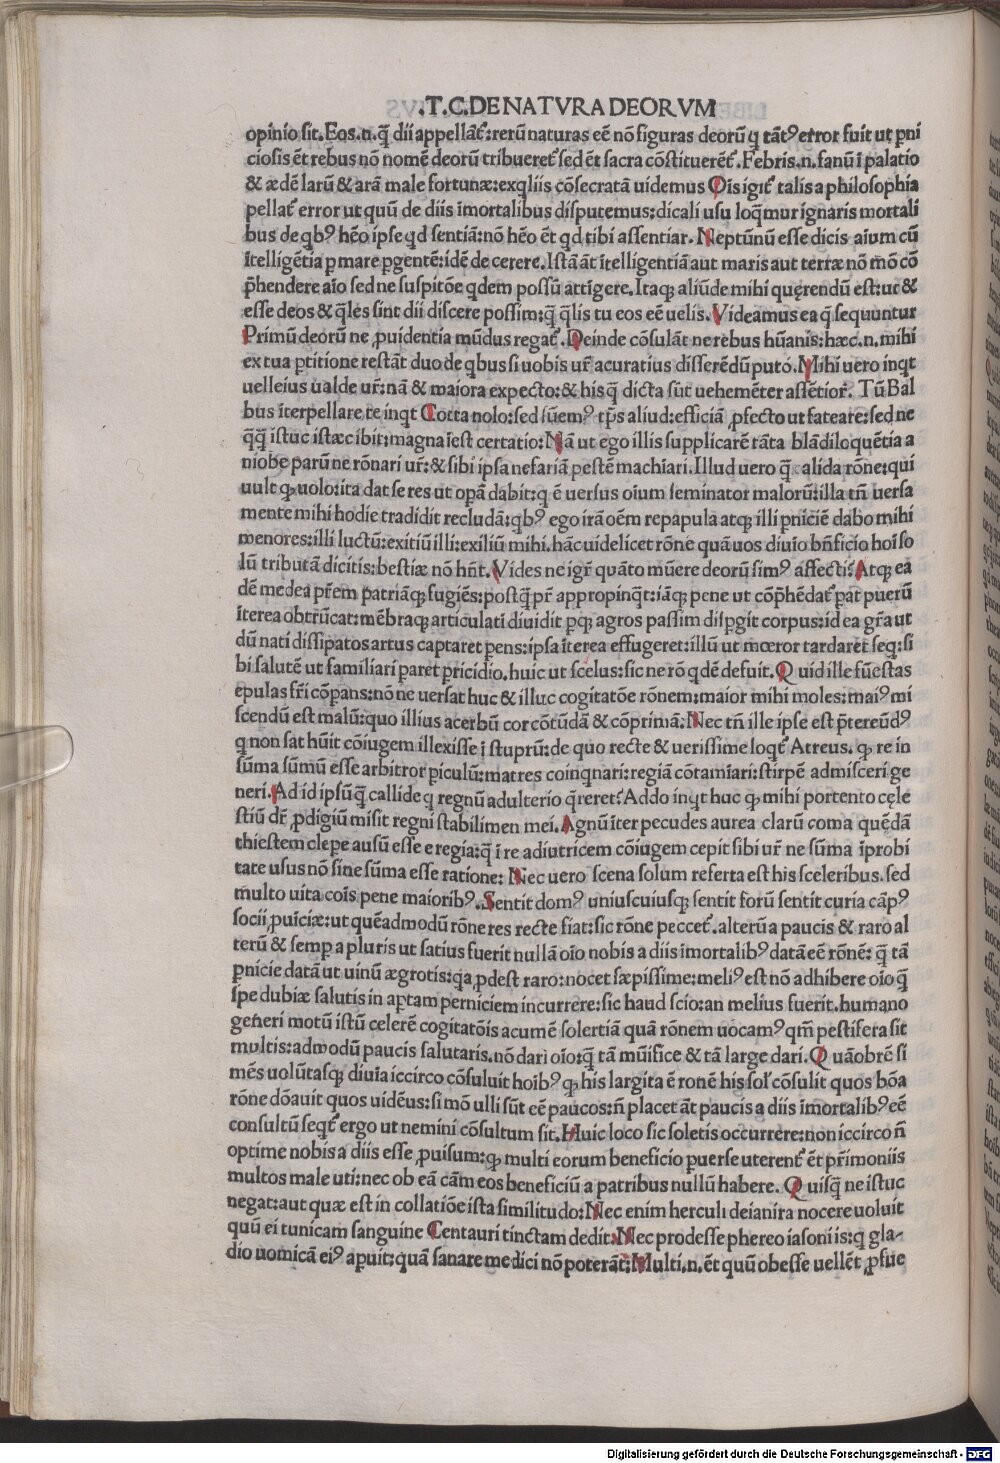 .T.C.DE NATVRA DEORVM
opinio sit. Eos.n.q̄ dii appellāt᷒:rerū naturas eē nō figuras deorū q tāt᷒ error fuit ut ꝑni
ciosis ēt rebus nō nomē deorū tribueret᷒ sed ēt sacra cōstituerēt᷒. Febris.n.fanū ī palatio
& ædē larū & arā male fortunæ:exqliis cōsecratā uidemus Oīs igit᷒ talis a philosophia
pellat᷒ error ut quū de diis īmortalibus disputemus:dicali usu loq̄mur ignaris mortali
bus de qb᷒ hēo ipse qd sentiā:nō hēo ēt qd tibi assentiar. Neptūnū esse dicis aium cū
ītelligētia ꝑ mare ꝑgentē:idē de cerere. Istā āt ītelligentiā aut maris aut terræ nō mō cō
p̄hendere aīo sed ne suspitōe qdem possū attīgere. Itaqꝫ aliūde mihi quęrendū est:ut &
esse deos & q̄les sint dii discere possim:q̄ q̄lis tu eos eē uelis. Videamus ea q̄ sequuntur
Primū deorū ne ꝓuidentia mūdus regat᷒. Deinde cōsulāt ne rebus hūanis:hæc.n.mihi
ex tua ꝑtitione restāt duo de qbus si uobis ur᷒ acuratius disserēdū puto. Mihi uero inqt
uelleius ualde ur᷒:nā & maiora expecto:& his q̄ dicta sūt uehemēter assētior. Tū Bal
bus īterpellare te inqt Cotta nolo:sed sūem᷒ tp̄s aliud:efficiā ꝓfecto ut fateare:sed ne
q̄q̄ istuc istæc ibit:magna īest certatio:Nā ut ego illis supplicarē tāta blādiloquētia a
niobe parū ne rōnari ur᷒:& sibi ipsa nefariā pestē machiari. Illud uero q̄ calida rōne:qui
uult qꝫ uolo:ita dat se res ut opā dabit:q ē uersus oium seminator malorū:illa tn̄ uersa
mente mihi hodie tradidit recludā:qb᷒ ego irā oēm repapula atqꝫ illi ꝑniciē dabo mihi
menores:illi luctū:exitiū illi:exiliū mihi.hāc uidelicet rōne quā uos diuio bn̄ficio hoī so
lū tributā dicitis:bestiæ nō hn̄t. Vides ne igr᷒ quāto mūere deorū sim᷒ affecti? Atqꝫ eā
dē medea pr̄em patriāqꝫ fugiēs:postq̄ pr̄ appropinq̄t:iāqꝫ pene ut cōp̄hēdat᷒ ꝑat puerū
īterea obtrūcat:mēbraqꝫ articulati diuidit ꝑqꝫ agros passim disꝑgit corpus:id ea gr̄a ut
dū nati dissipatos artus captaret ꝑens:ipsa īterea effugeret:illū ut mœror tardaret seq:si
bi salutē ut familiari paret pricidio.huic ut scelus:sic ne rō qdē defuit. Quid ille fūestas
epulas fr̄i cōpans:nō ne uersat huc & illuc cogitatōe rōnem:maior mihi moles:mai᷒ mi
scendū est malū:quo illius acerbū cor cōtūdā & cōprimā:Nec tn̄ ille ipse est p̄tereūd᷒
q non sat hūit cōiugem illexisse ī stuprū:de quo recte & uerissime loqt᷒ Atreus. qꝫ re in
sūma sūmū esse arbitror ꝑiculū:matres coinqnari:regiā cōtamiari:stirpē admisceri ge
neri. Ad id ipsū q̄ callide q regnū adulterio q̄reret: Addo inqt huc qꝫ mihi portento cęle
stiū dr̄ ꝓdigiū misit regni stabilimen mei. Agnū īter pecudes aurea clarū coma quēdā
thiestem clepe ausū esse e regia:q̄ ī re adiutricem cōiugem cepit sibi ur᷒ ne sūma īprobi
tate usus nō sine sūma esse ratione: Nec uero scena solum referta est his sceleribus.sed
multo uita coīs pene maiorib᷒. Sentit dom᷒ uniuscuiusqꝫ sentit forū sentit curia cāp᷒
socii ꝓuīciæ:ut quēadmodū rōne res recte fiat:sic rōne peccet᷒.alterū a paucis & raro al
terū & semp a pluris ut satius fuerit nullā oīo nobis a diis īmortalib᷒ datā eē rōnē: q̄ tā
ꝑnicie datā ut uinū ægrotis:qa ꝓdest raro:nocet sæpissime:meli᷒ est nō adhibere oīo q̄
spe dubiæ salutis in aptam perniciem incurrere:sic haud scio:an melius fuerit.humano
generi motū istū celerē cogitatōis acumē solertiā quā rōnem uocam᷒ qm̄ pestifera sit
multis:admodū paucis salutaris.nō dari oīo:q̄ tā mūifice & tā large dari. Quāobrē si
mēs uolūtasqꝫ diuīa iccirco cōsuluit hoib᷒ qꝫ his largita ē ronē his sol᷒ cōsulit quos bōa
rōne dōauit quos uidēus:si mō ulli sūt eē paucos:n̄ placet āt paucis a diis īmortalib᷒ eē
consultū seqt᷒ ergo ut nemini cōsultum sit. Huic loco sic soletis occurrere:non iccirco n̄
optime nobis a diis esse ꝓuisum:qꝫ multi eorum beneficio puerse uterent᷒ ēt pr̄imoniis
multos male uti:nec ob eā cām eos beneficiū a patribus nullū habere. Quisq̄ ne istuc
negat:aut quæ est in collatiōe ista similitudo:Nec enim herculi deianira nocere uoluit
quū ei tunicam sanguine Centauri tinctam dedit:Nec prodesse phereo iasoni is:q gla-
dio uomicā ei᷒ aꝑuit:quā sanare medici nō poterāt:Multi.n.ēt quū obesse uellēt ꝓfue
Digitalisierung gefördert durch die Deutsche Forschungsgemeinschaft - DFG